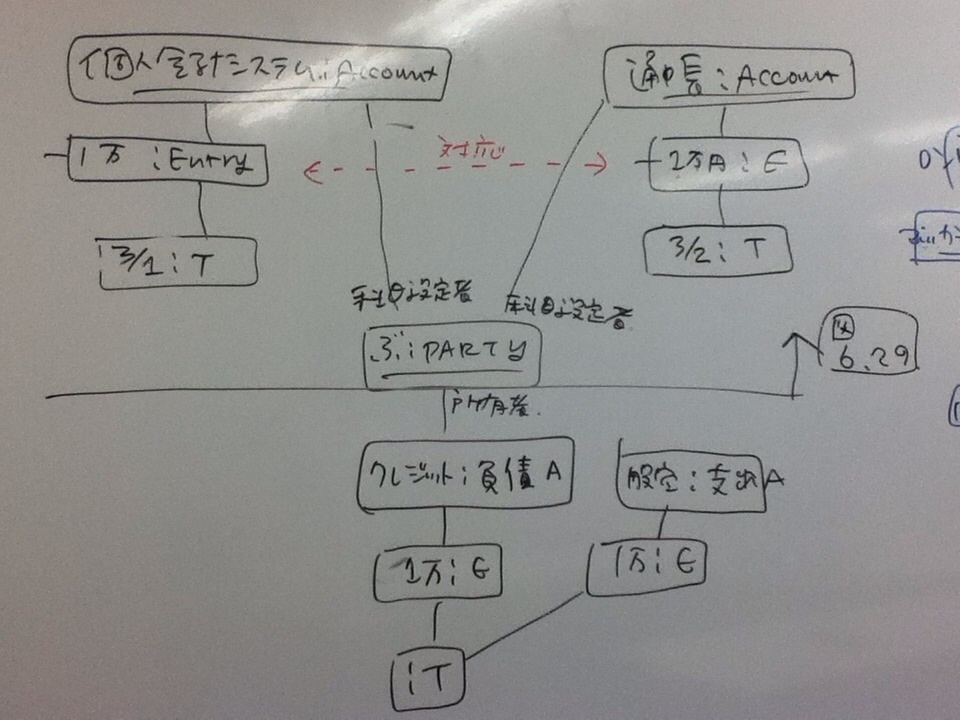 個人会計システム:Account
通帳:Account
1万 :Entry
対応
1万円:E
3/1:T
3/2:T
科目設定者
科目設定者
ぶ:PARTY
図
6.29
所有者
クレジット:負債A
航空:支出A
1万:E
1万:E
:T